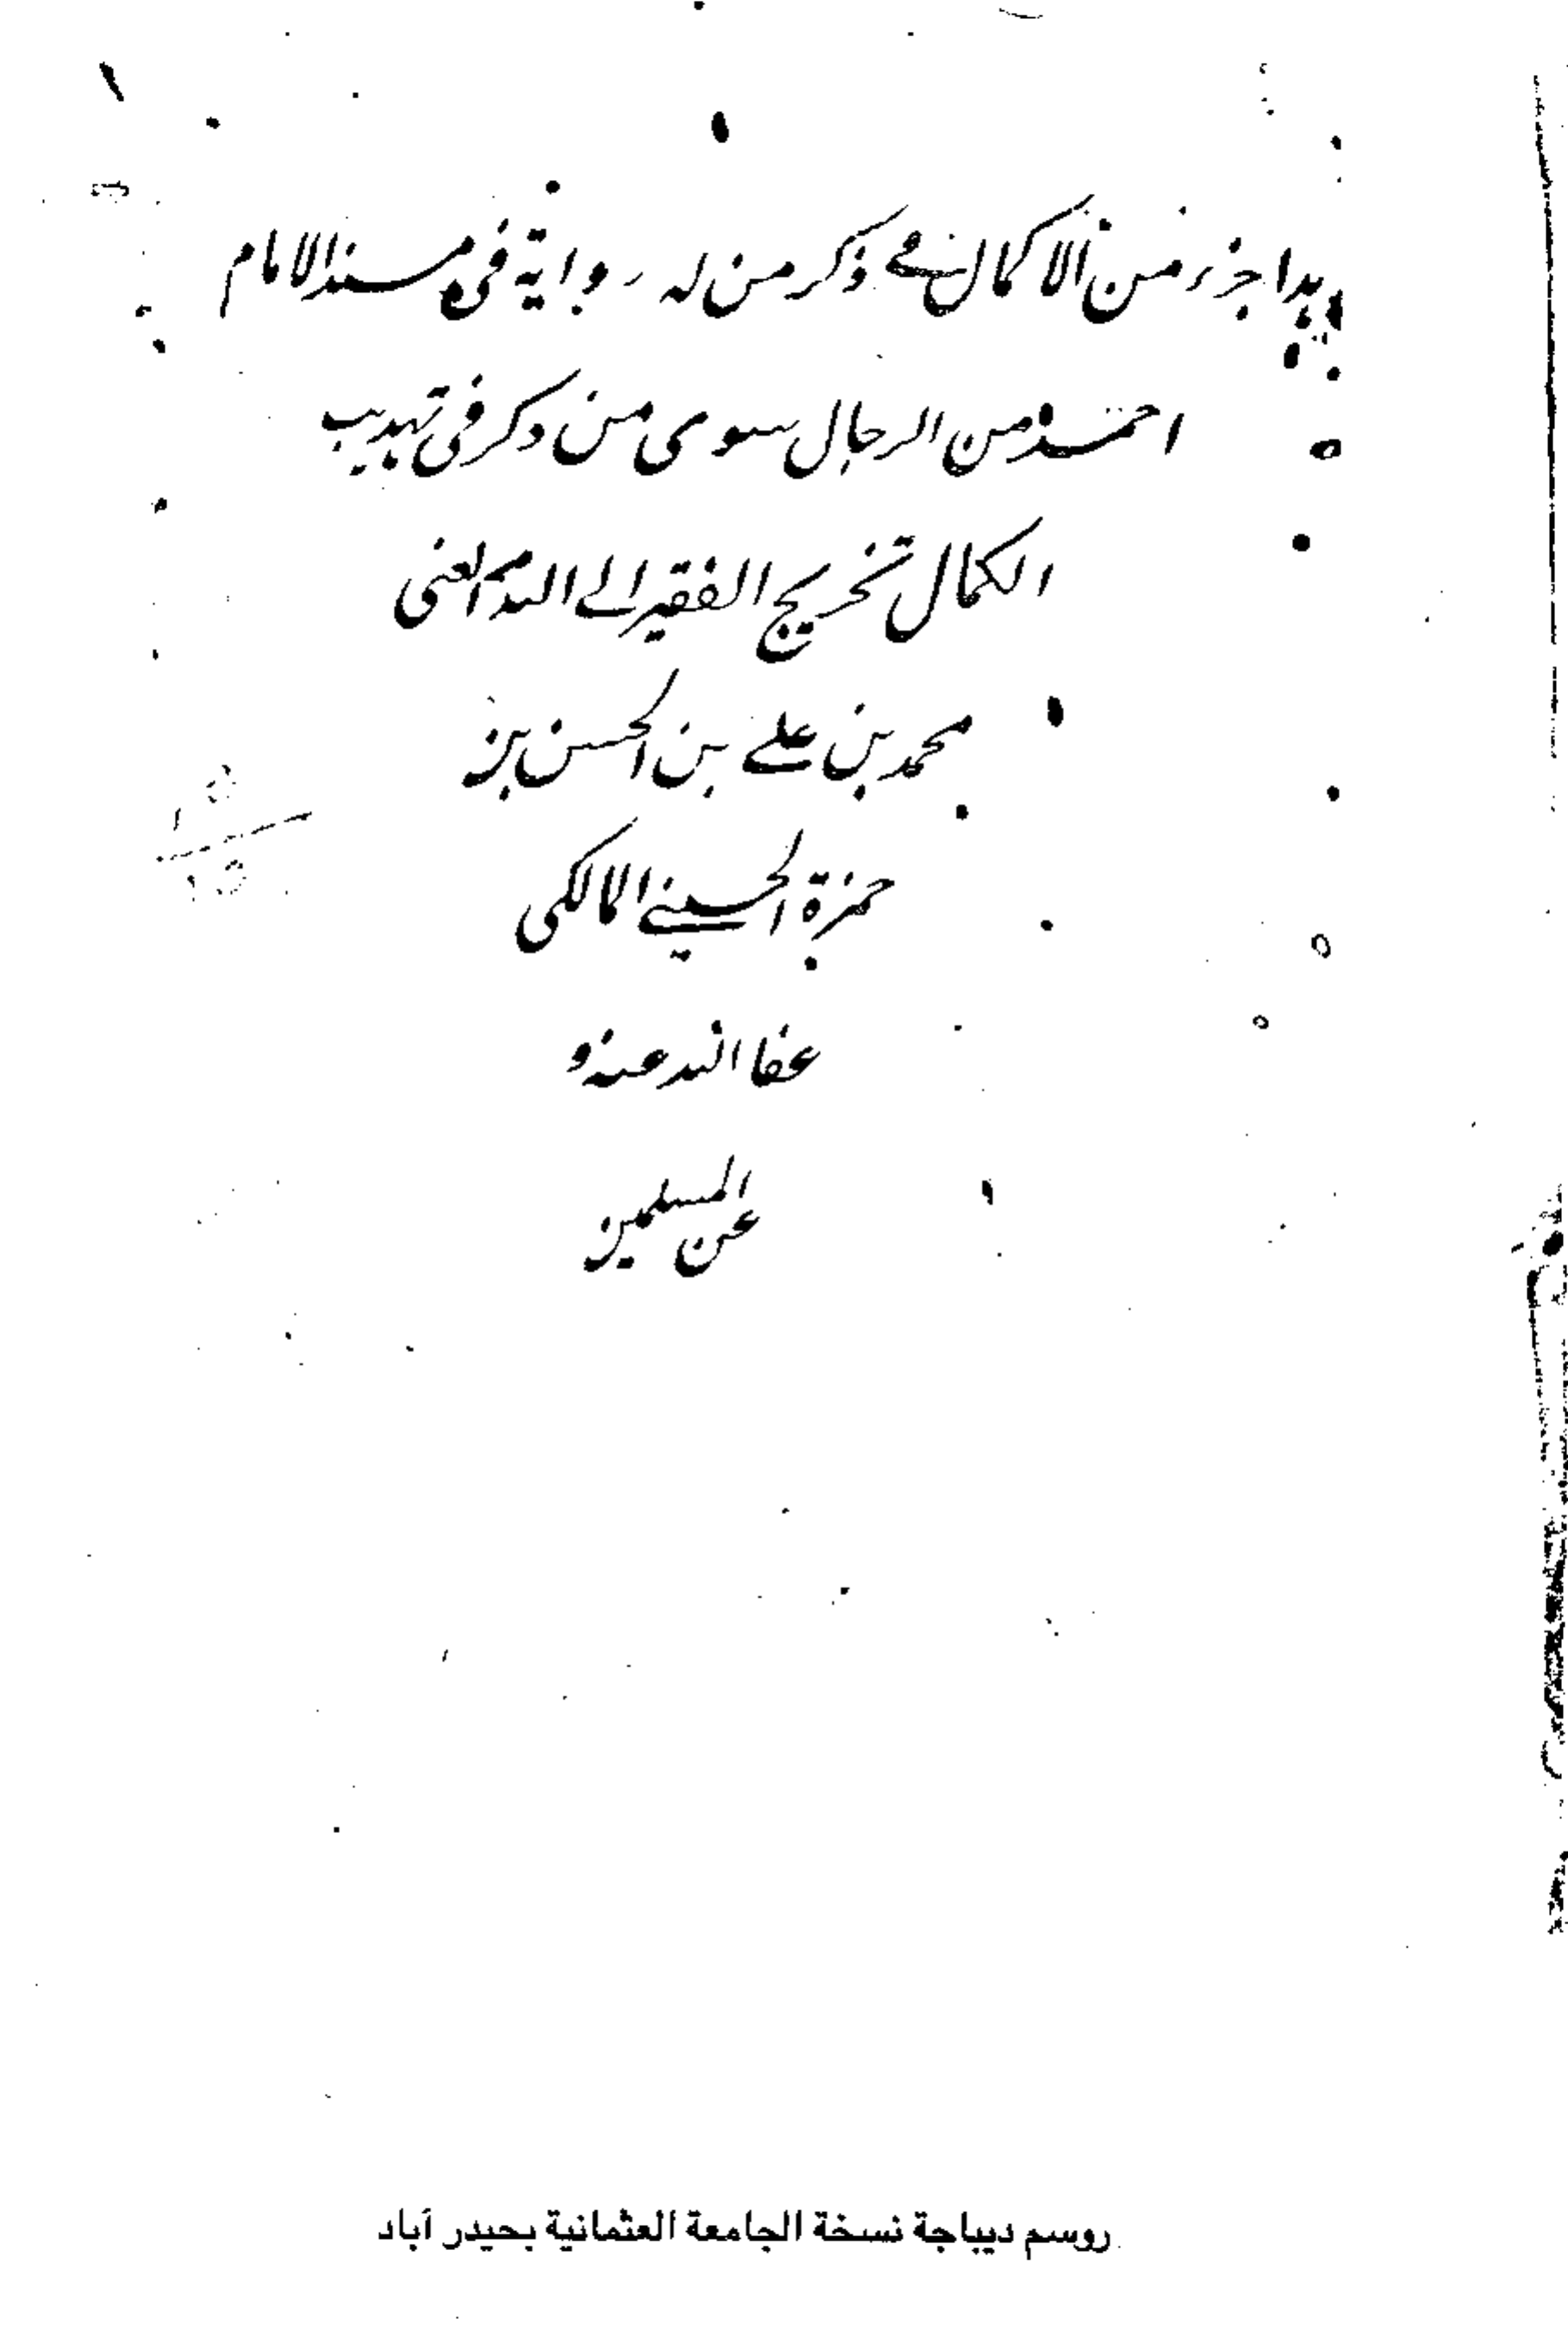 هذا جزء من الاكمال في ذكر من له رواية فى مسند الامام
احمد من الرجال سوى من ذكر فى تهذيب
الكمال تخريج الفقير الى الله الغنى
محمد بن على بن الحسن بن
حمزة الحسينى المالكى
عفا الله عنه و
عن المسلمين
روسم ديباجة نسخة الجامعة العثمانية بحيدر آباد